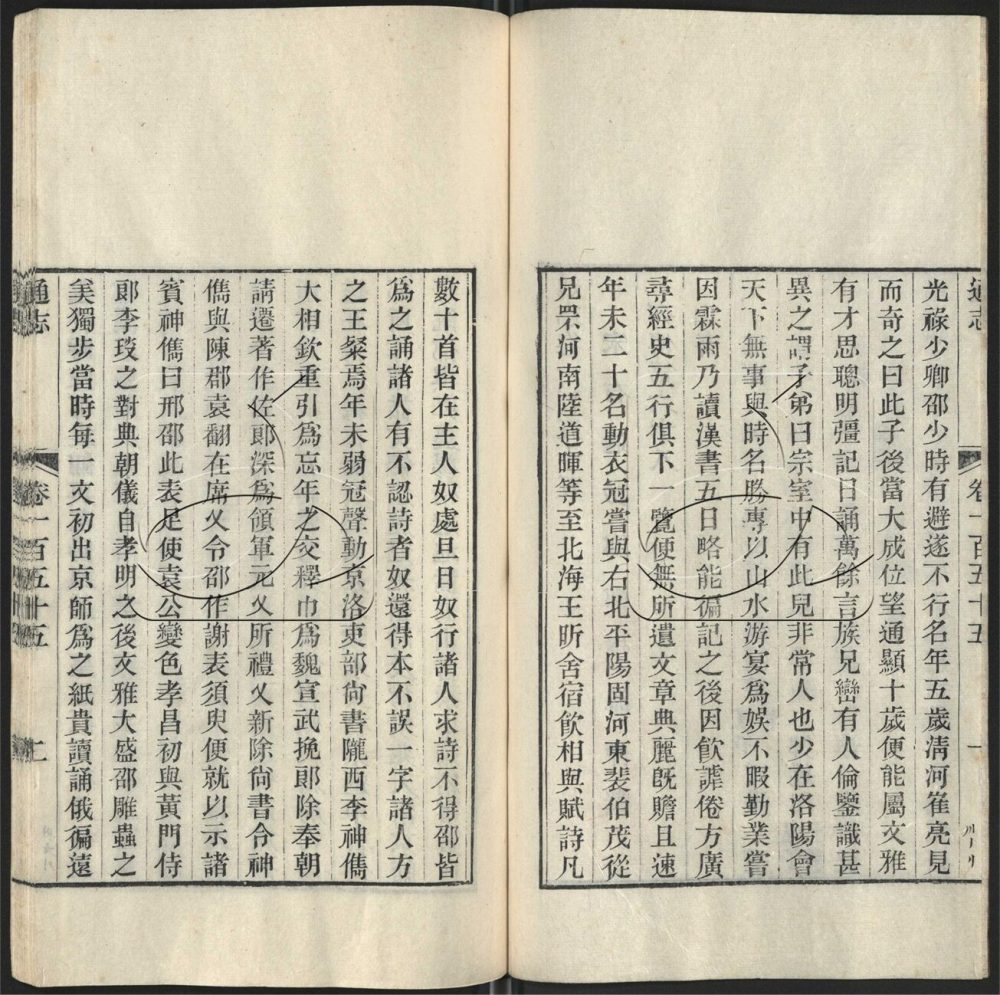 通志
卷一百五十五
一
光祿少卿邵少時有避遂不行名年五歲淸河崔亮見
而奇之曰此子後當大成位望通顯十歲便能屬文雅
有才思聰明彊記日誦萬餘言族兄巒有人倫鑒識甚
異之謂子弟曰宗室中有此兒非常人也少在洛陽會
天下無事與時名勝專以山水游宴爲娛不暇勤業嘗
因霖雨乃讀漢書五日略能徧記之後因飮謔倦方廣
尋經史五行俱下一覽便無所遺文章典麗旣贍且速
年未二十名動衣冠嘗與右北平陽固河東裴伯茂從
兄罘河南陸道暉等至北海王昕舍宿飮相與賦詩凡
數十首皆在主人奴處旦日奴行諸人求詩不得邵皆
爲之誦諸人有不認詩者奴還得本不誤一字諸人方
之王粲焉年未弱冠聲動京洛吏部尙書隴西李神儁
大相欽重引爲忘年之交釋巾爲魏宣武挽郎除奉朝
請遷著作佐郎深爲領軍元乂所禮乂新除尙書令神
儁與陳郡袁翻在席乂令邵作謝表須臾便就以示諸
賓神儁曰邢邵此表足使袁公變色孝昌初與黃門侍
郎李琰之對典朝儀自孝明之後文雅大盛邵雕蟲之
美獨步當時每一文初出京師爲之紙貴讀誦俄徧遠
通志
卷一百五十五
二